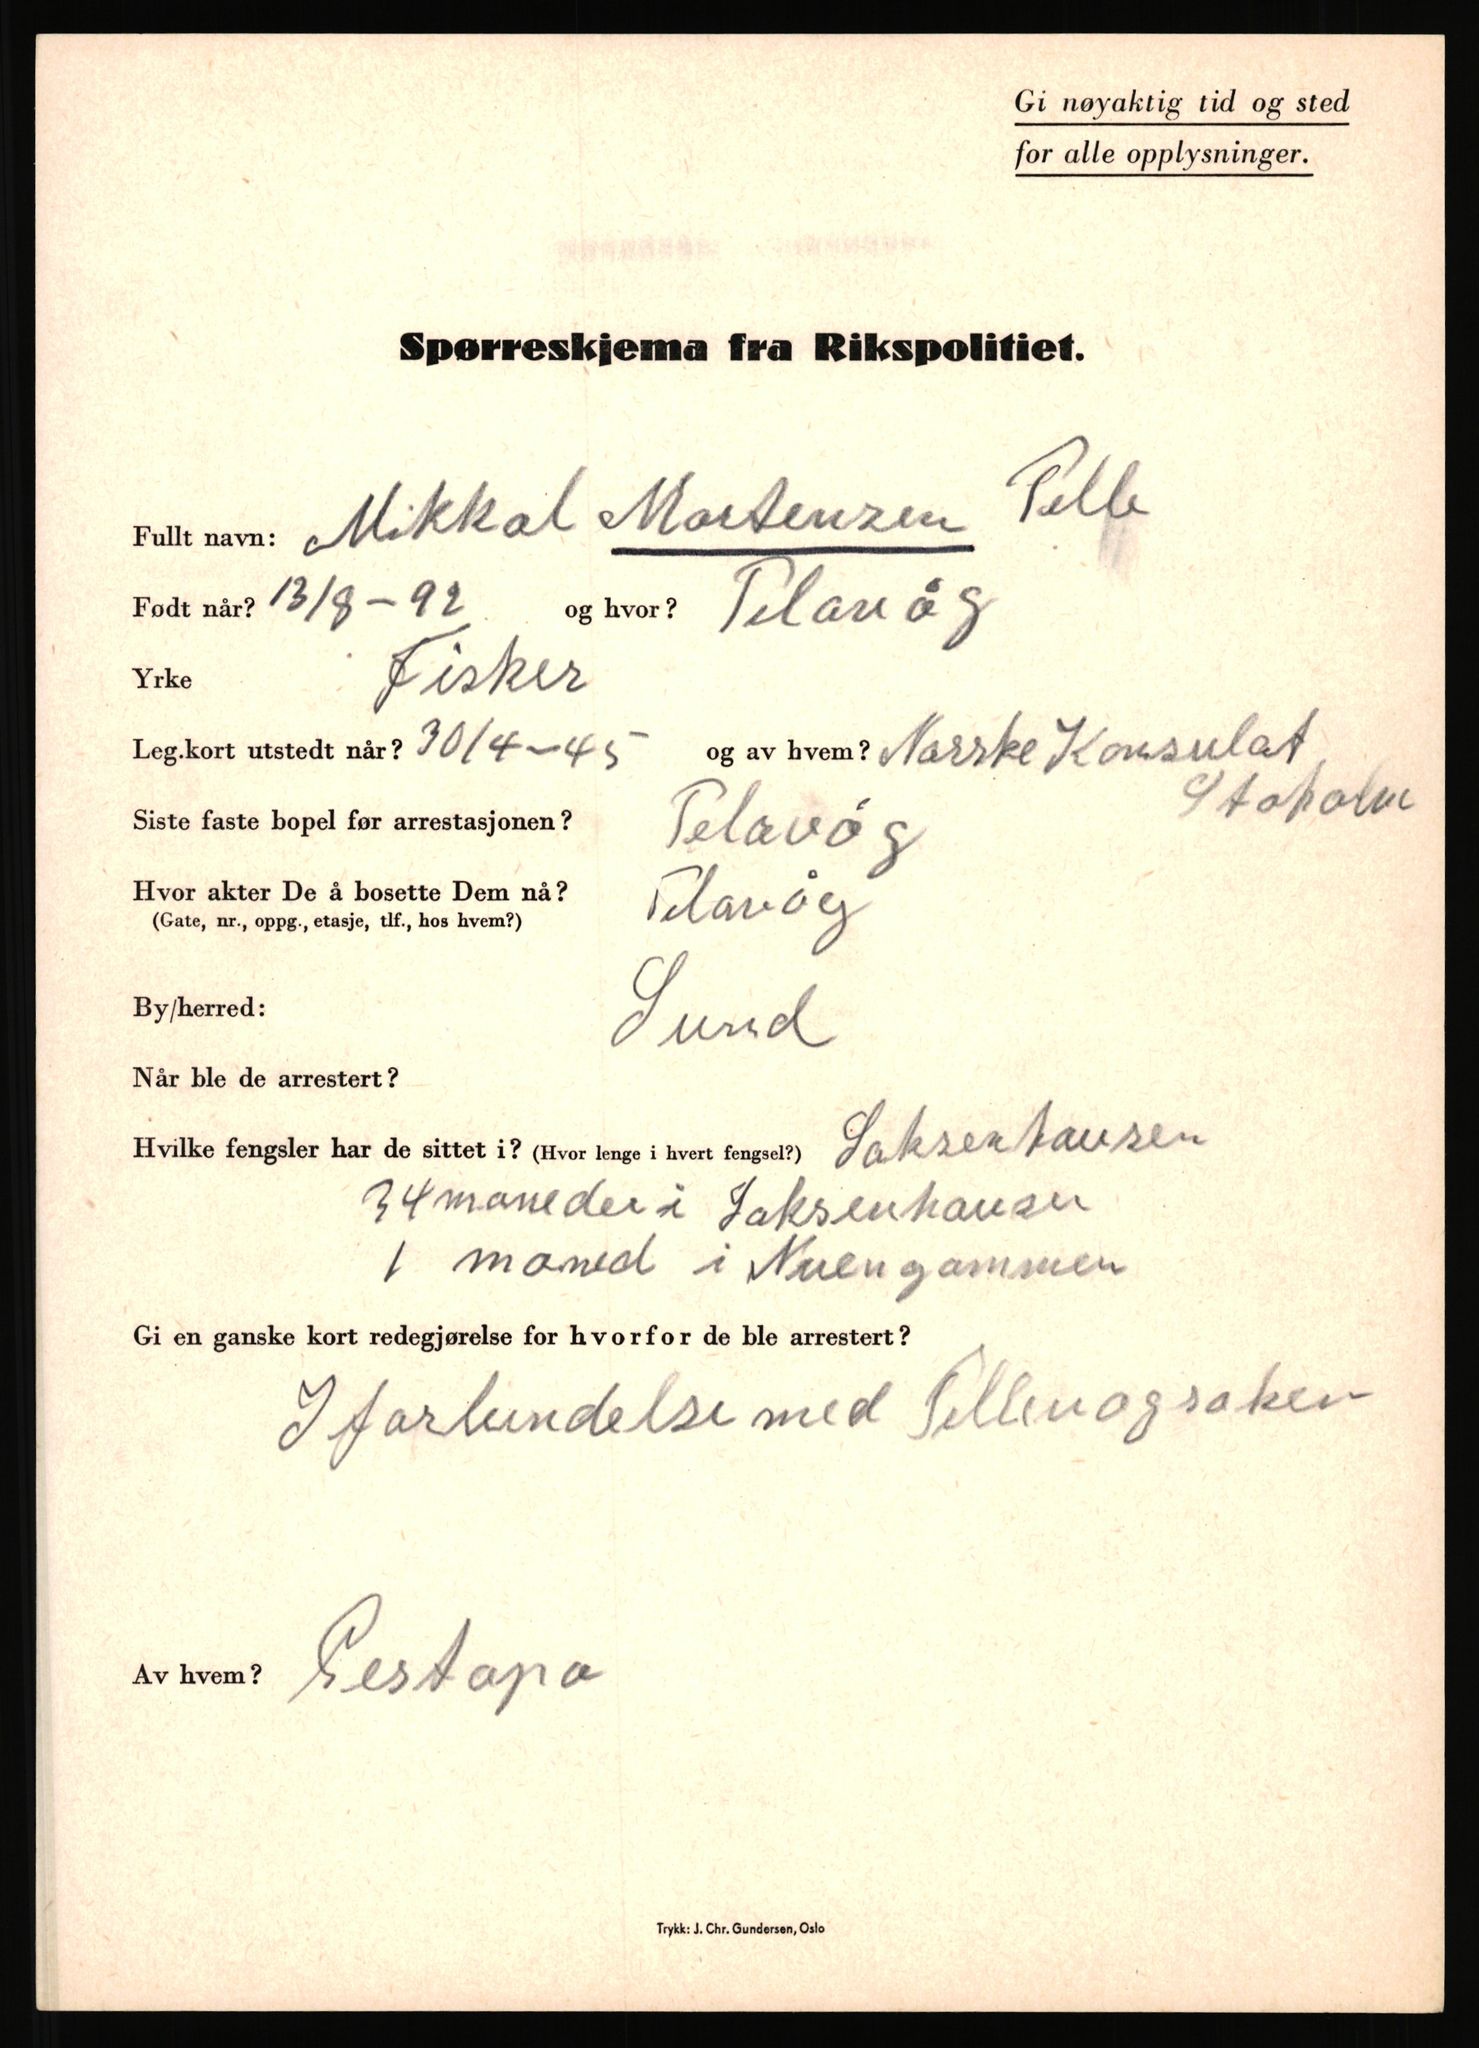 Gi nøyaktig tid og sted
for alle opplysninger.
Spørreskjema fra Rikspolitiet.
Fullt navn: Mikkal Mortensen Telle
Født når? 13/8-92 og hvor? Telavåg
Yrke Fisker
Leg.kort utstedt når? 30/4-45 og av hvem? Norske Konsulat
Stoholm
Siste faste bopel før arrestasjonen? Telavåg
Hvor akter De å bosette Dem nå? Telavåg
(Gate, nr., oppg., etasje, tlf., hos hvem?)
By/herred: Sund
Når ble de arrestert?
Hvilke fengsler har de sittet i? (Hvor lenge i hvert fengsel?) Saksenhausen
34 moneder i Saksenhausen
1 moned i Nuengammen
Gi en ganske kort redegjørelse for hvorfor de ble arrestert?
I forbindelse med Tellevogsaken
Av hvem? Gestapo
Trykk: J. Chr. Gundersen, Oslo